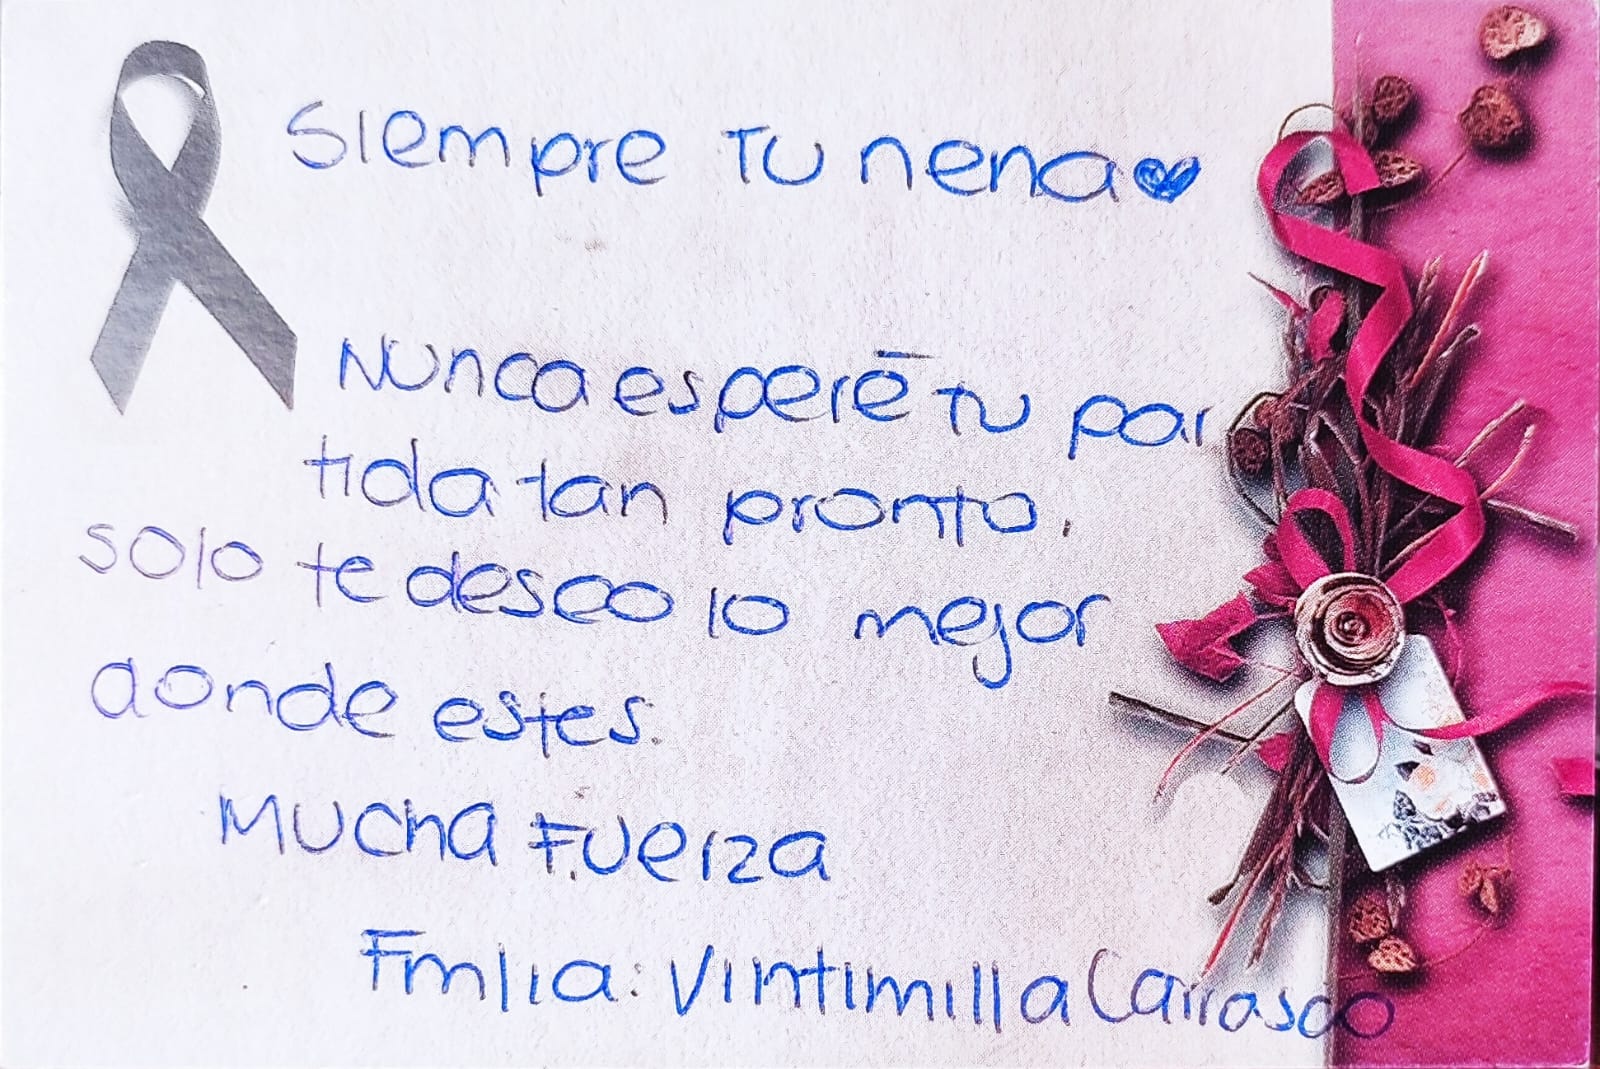 Siempre TU nena
NUnca esperé TU par
tida tan pronto.
solo te deseo lo mejor
donde estes.
MUCha FUerza
Fmlia: Vintimilla Carrasco